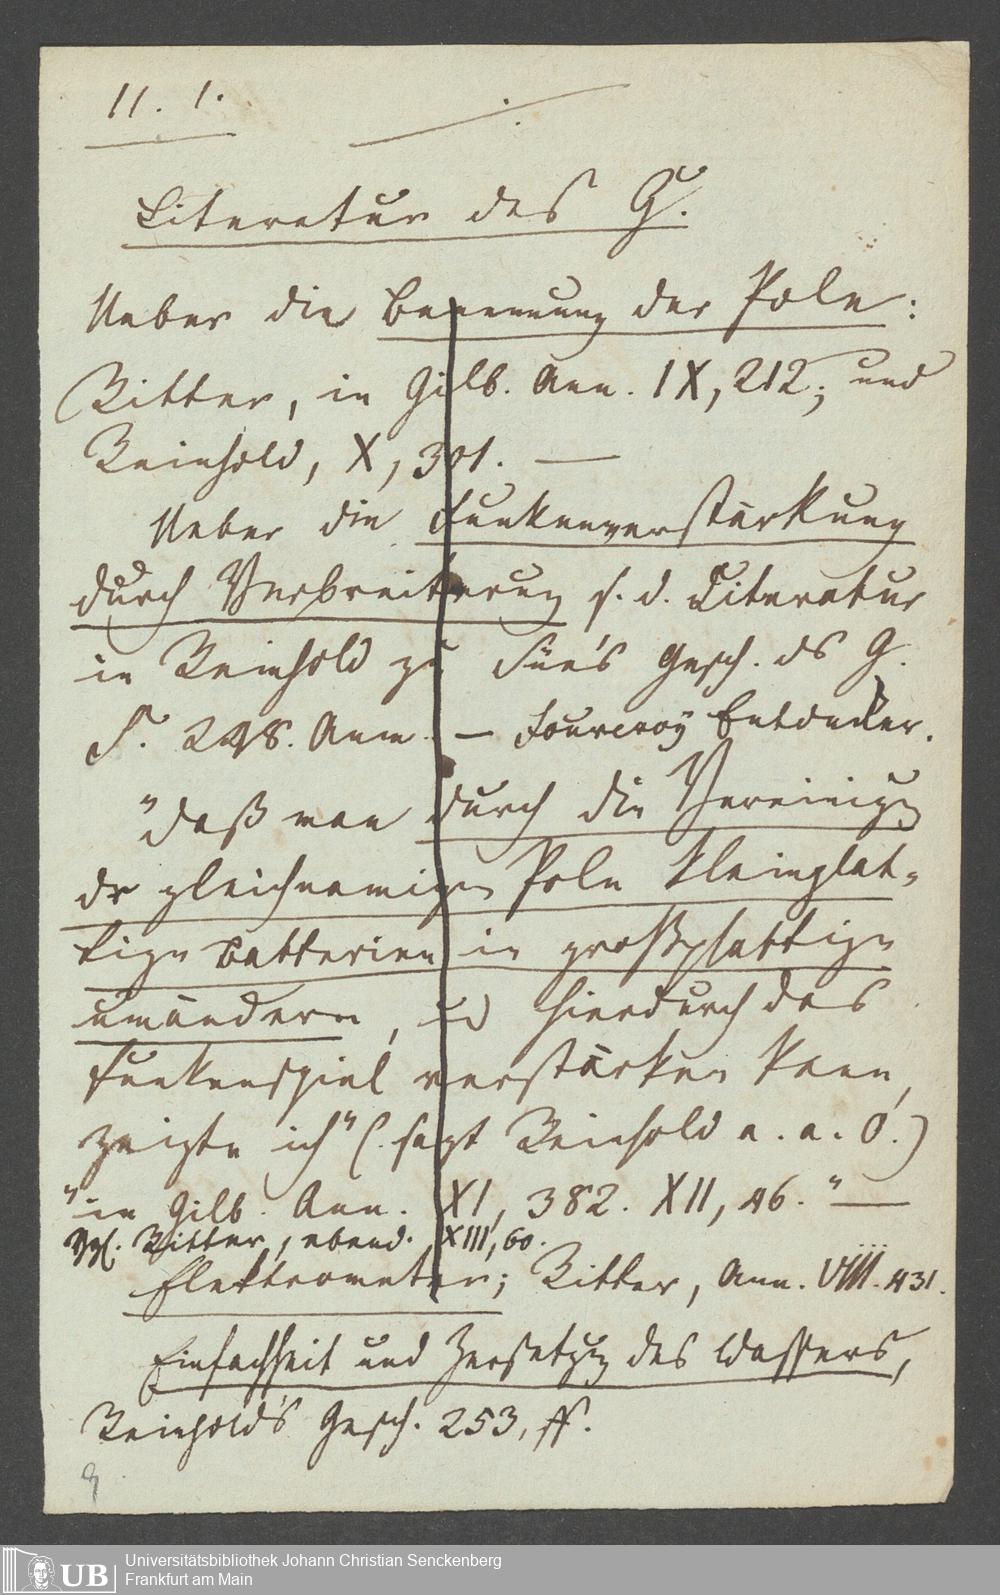 11. 1.
Literatur des G.
Ueber die Benennung der Pole:
Ritter, in Gilb. Ann. IX, 212; und
Reinhold, X, 301. —
Ueber die Funkenverstärkung
durch Verbreiterung s. d. Literatur
in Reinhold zu Süe's Gesch. ds G.
S. 248. Anm. — Fourcroy Entdecker.
"daß man durch die Vereinigg
dr gleichnamign Pole kleinplat-
tige Batterien in großplattige
umändern, ud hierdurch das
Funkenspiel verstärken kann,
zeigte ich" (sagt Reinhold a. a. O.)
"in Gilb. Ann. XI, 382. XII, 46." —
Vgl. Ritter, ebend. XIII, 60.
Elektrometer; Ritter, Ann. VIII. 431.
Einfachheit und Zersetzg des Wassers,
Reinhold's Gesch. 253, ff.
9
UB
Universitätsbibliothek Johann Christian Senckenberg
Frankfurt am Main